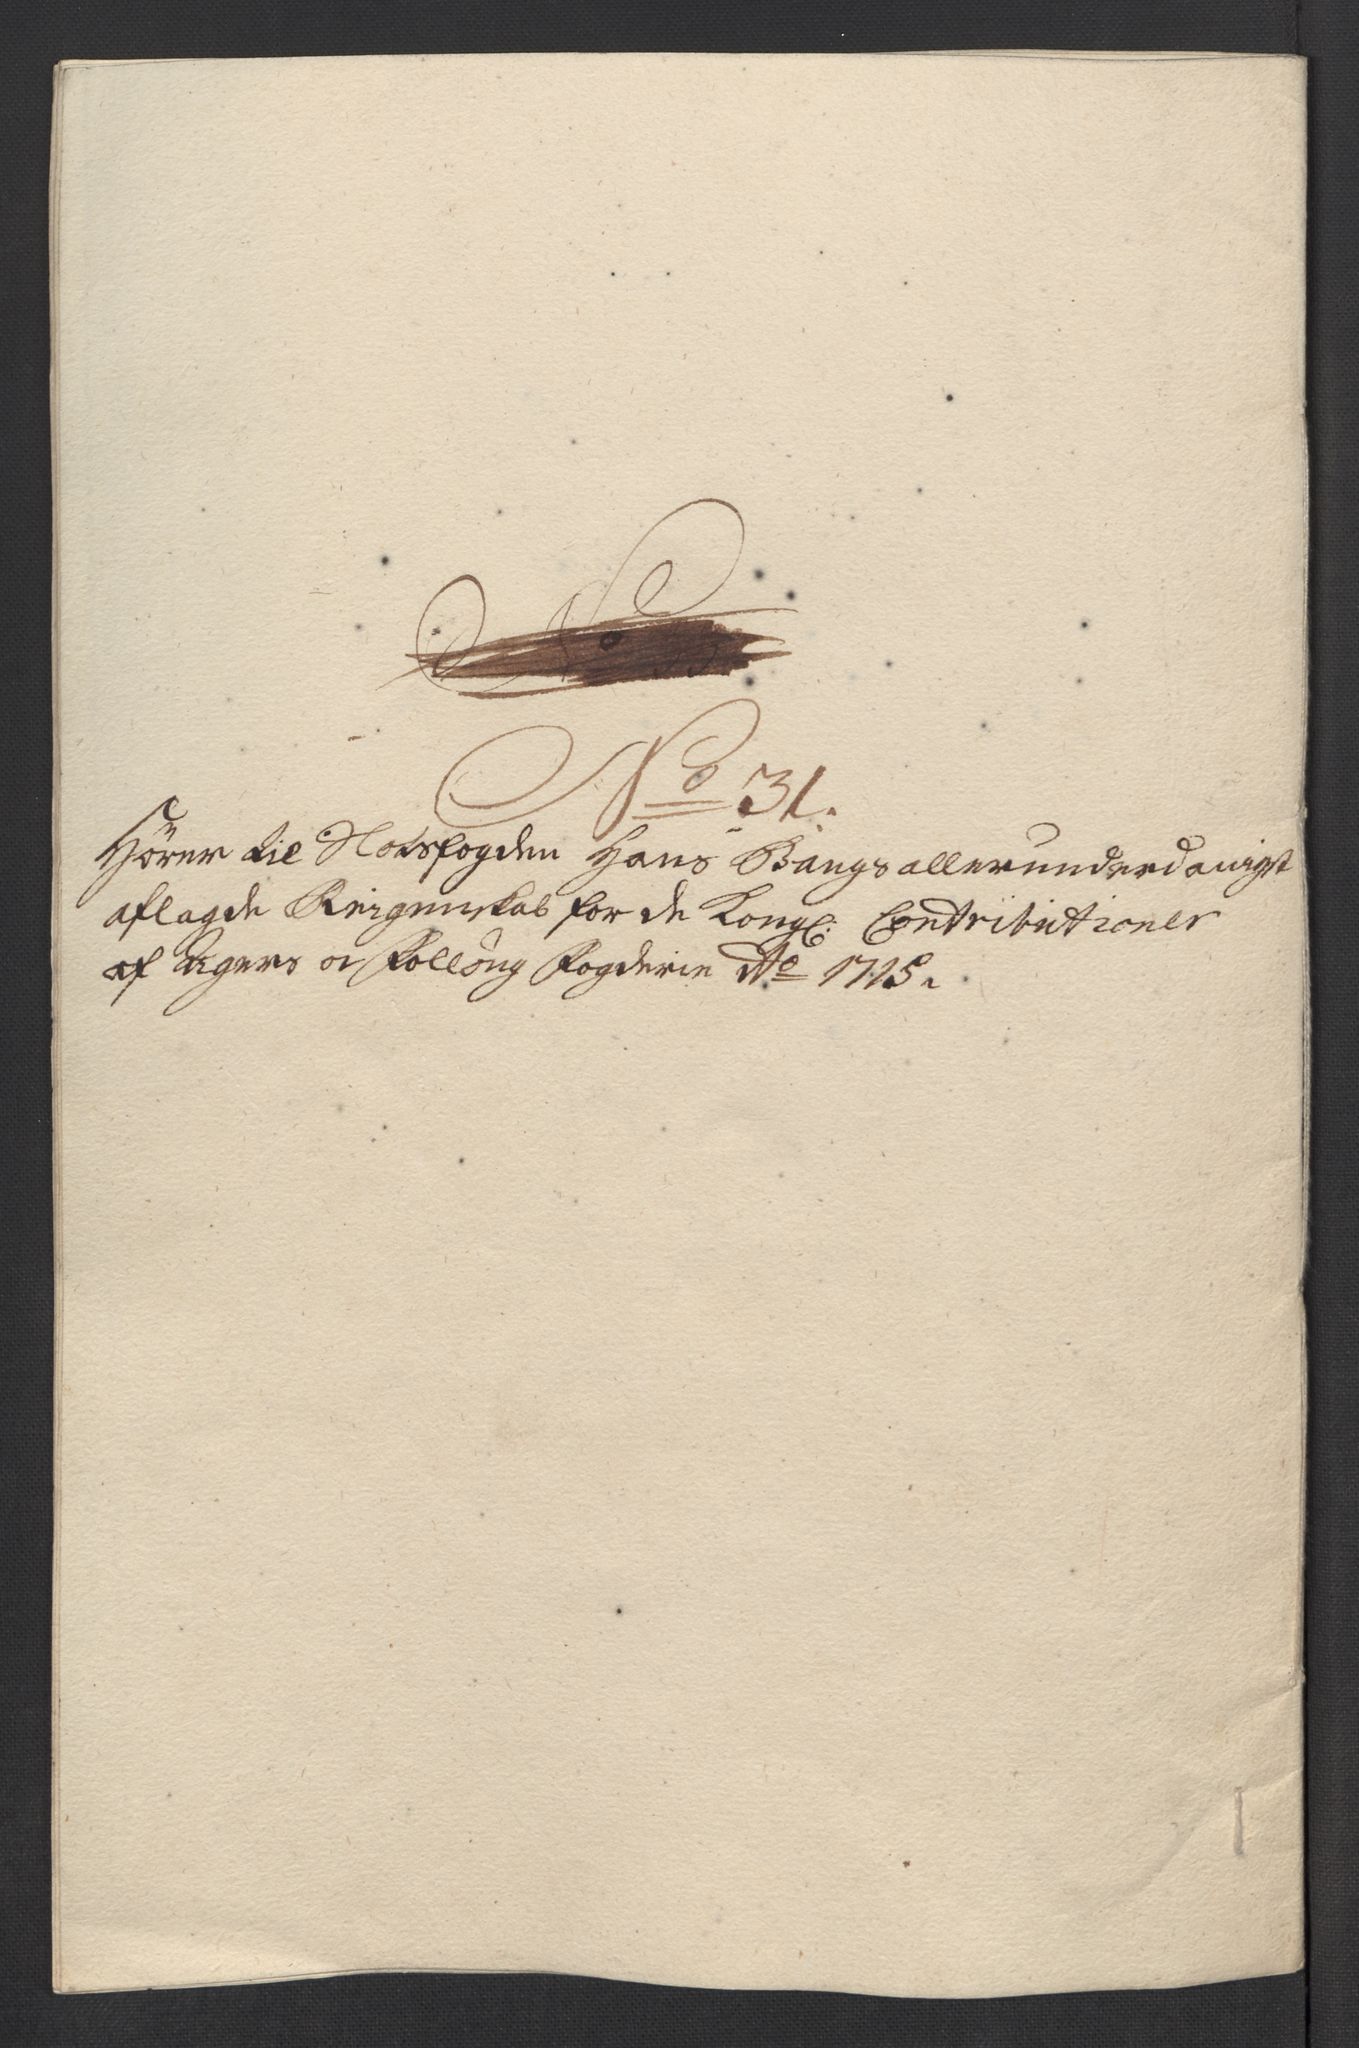 No 31.
Hörer til Slotsfogden Hans Bangs allerunderdanigst
aflagde Reigenskab for de Kongl: Contributioner
af Agers oc Follóug Fogderie Ao 1715.